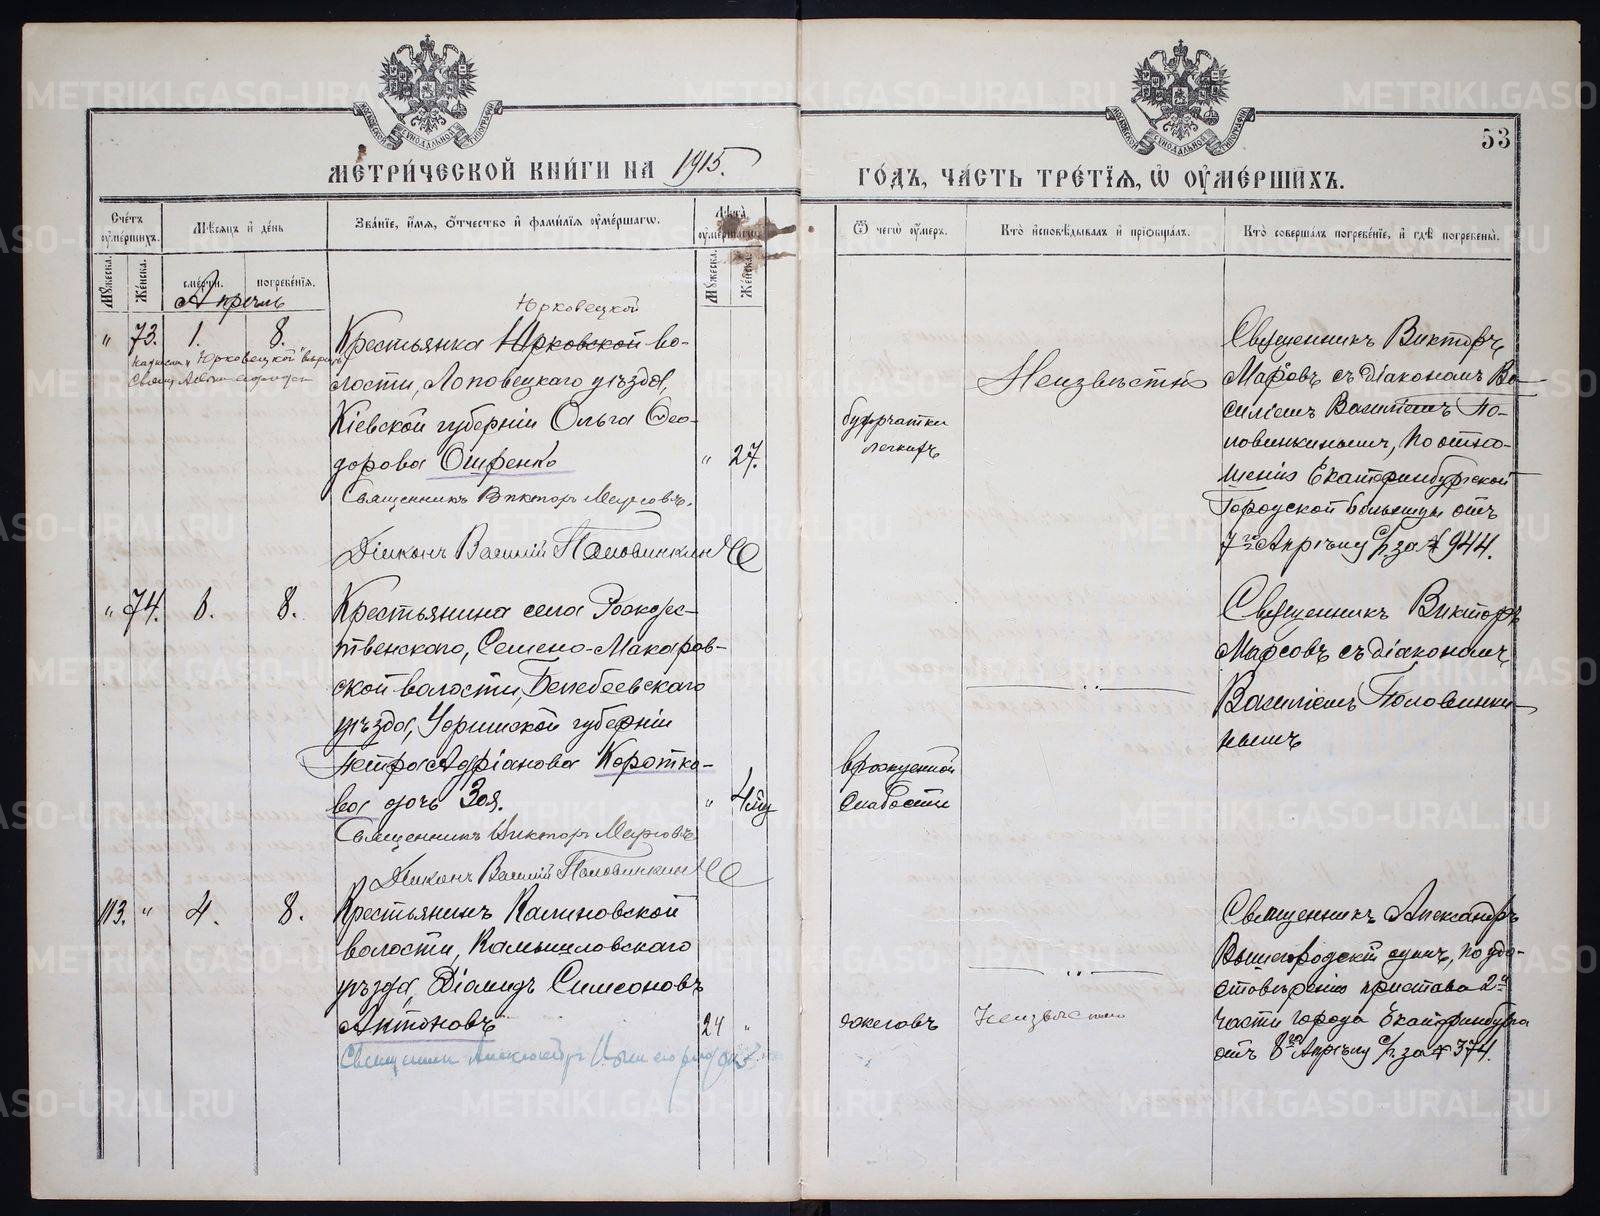 МЕТРИ́ЧЕСКОЙ КНИ́ГИ НА 1915.
ГО́ДЪ, ЧА́СТЬ ТРЕ́ТЇѦ, Ѿ ОУМЕ́РШИХЪ.
53
Сче́тъ оуме́ршихъ.
Мѣ́сяцъ и де́нь
Зва́нїе, и́мя, о́тчество и фами́лїя оуме́ршагѡ.
Лѣта̀ оуме́ршагѡ.
Мꙋ́жеска.
Же́нска.
сме́рти.
погребе́нїя.
Мꙋ́жеска.
Же́нска.
Ѿ чегѡ̀ оу́меръ.
Кто̀ исповѣ́дывалъ и прїѡбща́лъ.
Кто̀ соверша́лъ погребе́нїе, и гдѣ̀ погребены̀.
Апрѣль
Юрковецкой
" 73. 1. 8.
Крестьянка Юрковской во-
лости, Липовецкаго уѣзда,
Кіевской губерніи Ольга Ѳео-
дорова
" 27.
Священникъ Викторъ Марсовъ.
Діаконъ Василій Половинкинъ
бугорчатки
легкихъ
Неизвѣстно
Священникъ Викторъ
Марсовъ съ діакономъ Ва-
силіемъ Василіемъ По-
ловинкинымъ, по отно-
шенію Екатеринбургской
Городской больницы отъ
7го Апрѣля с/г. за № 944.
" 74. 8. 8.
Крестьянина села Рождес-
твенскаго, Семено-Макаров-
ской волости, Белебеевскаго
уѣзда, Уфимской губерніи
Петра Адріанова Коротко-
ва дочь Зоя.
"
Священникъ Викторъ Марсовъ
Діаконъ Василій Половинкинъ
врожденной
слабости
— " —
Священникъ Викторъ
Марсовъ съ діакономъ
Василіемъ Половинки-
нымъ
113. " 4. 8.
Крестьянинъ Калиновской
волости, Камышловскаго
уѣзда, Діамидъ Симеоновъ
Антоновъ
24 "
Священникъ Александръ Вышегородскій
ожеговъ
— " —
Неизвѣстно
Священникъ Александръ
Вышегородскій одинъ, по удо-
стовѣренію пристава 2й
части города Екатеринбурга
отъ 8го Апрѣля с/г. за № 374.
METRIKI.GASO-URAL.RU